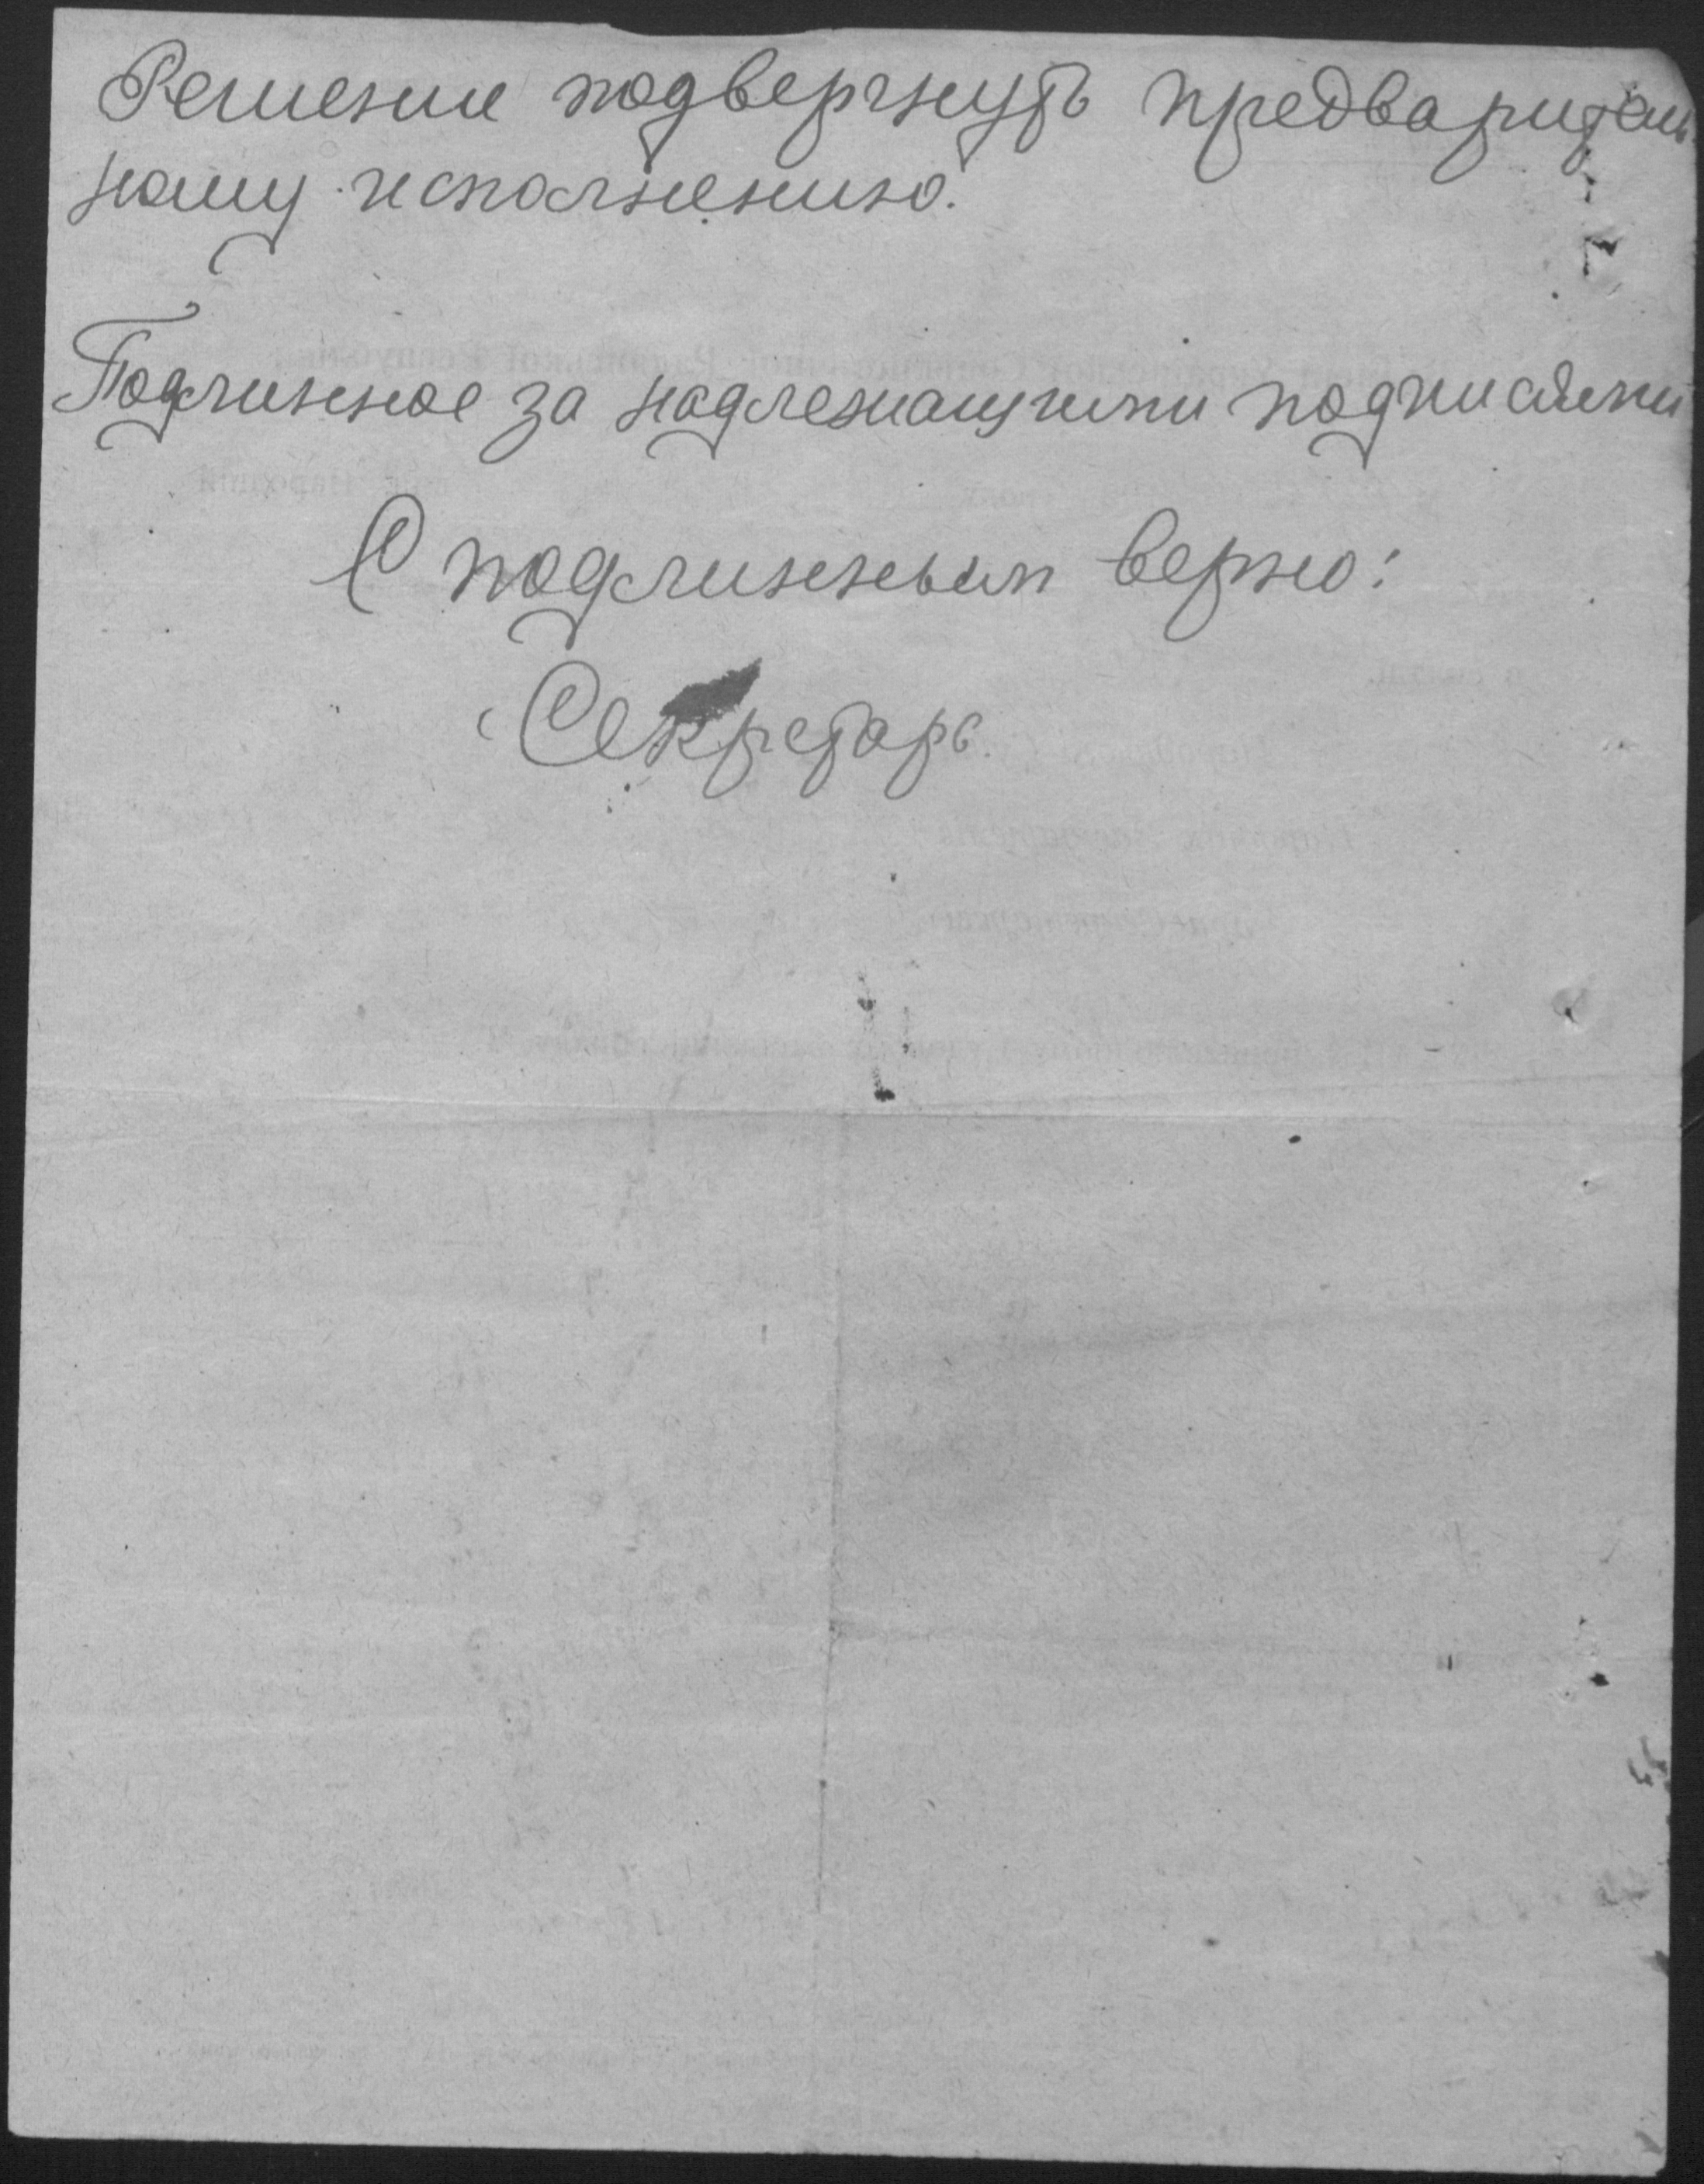 Решение подвергнуть предваритель
ному исполнению.
Подлинное за надлежащими подписями
С подлинным верно:
Секретарь